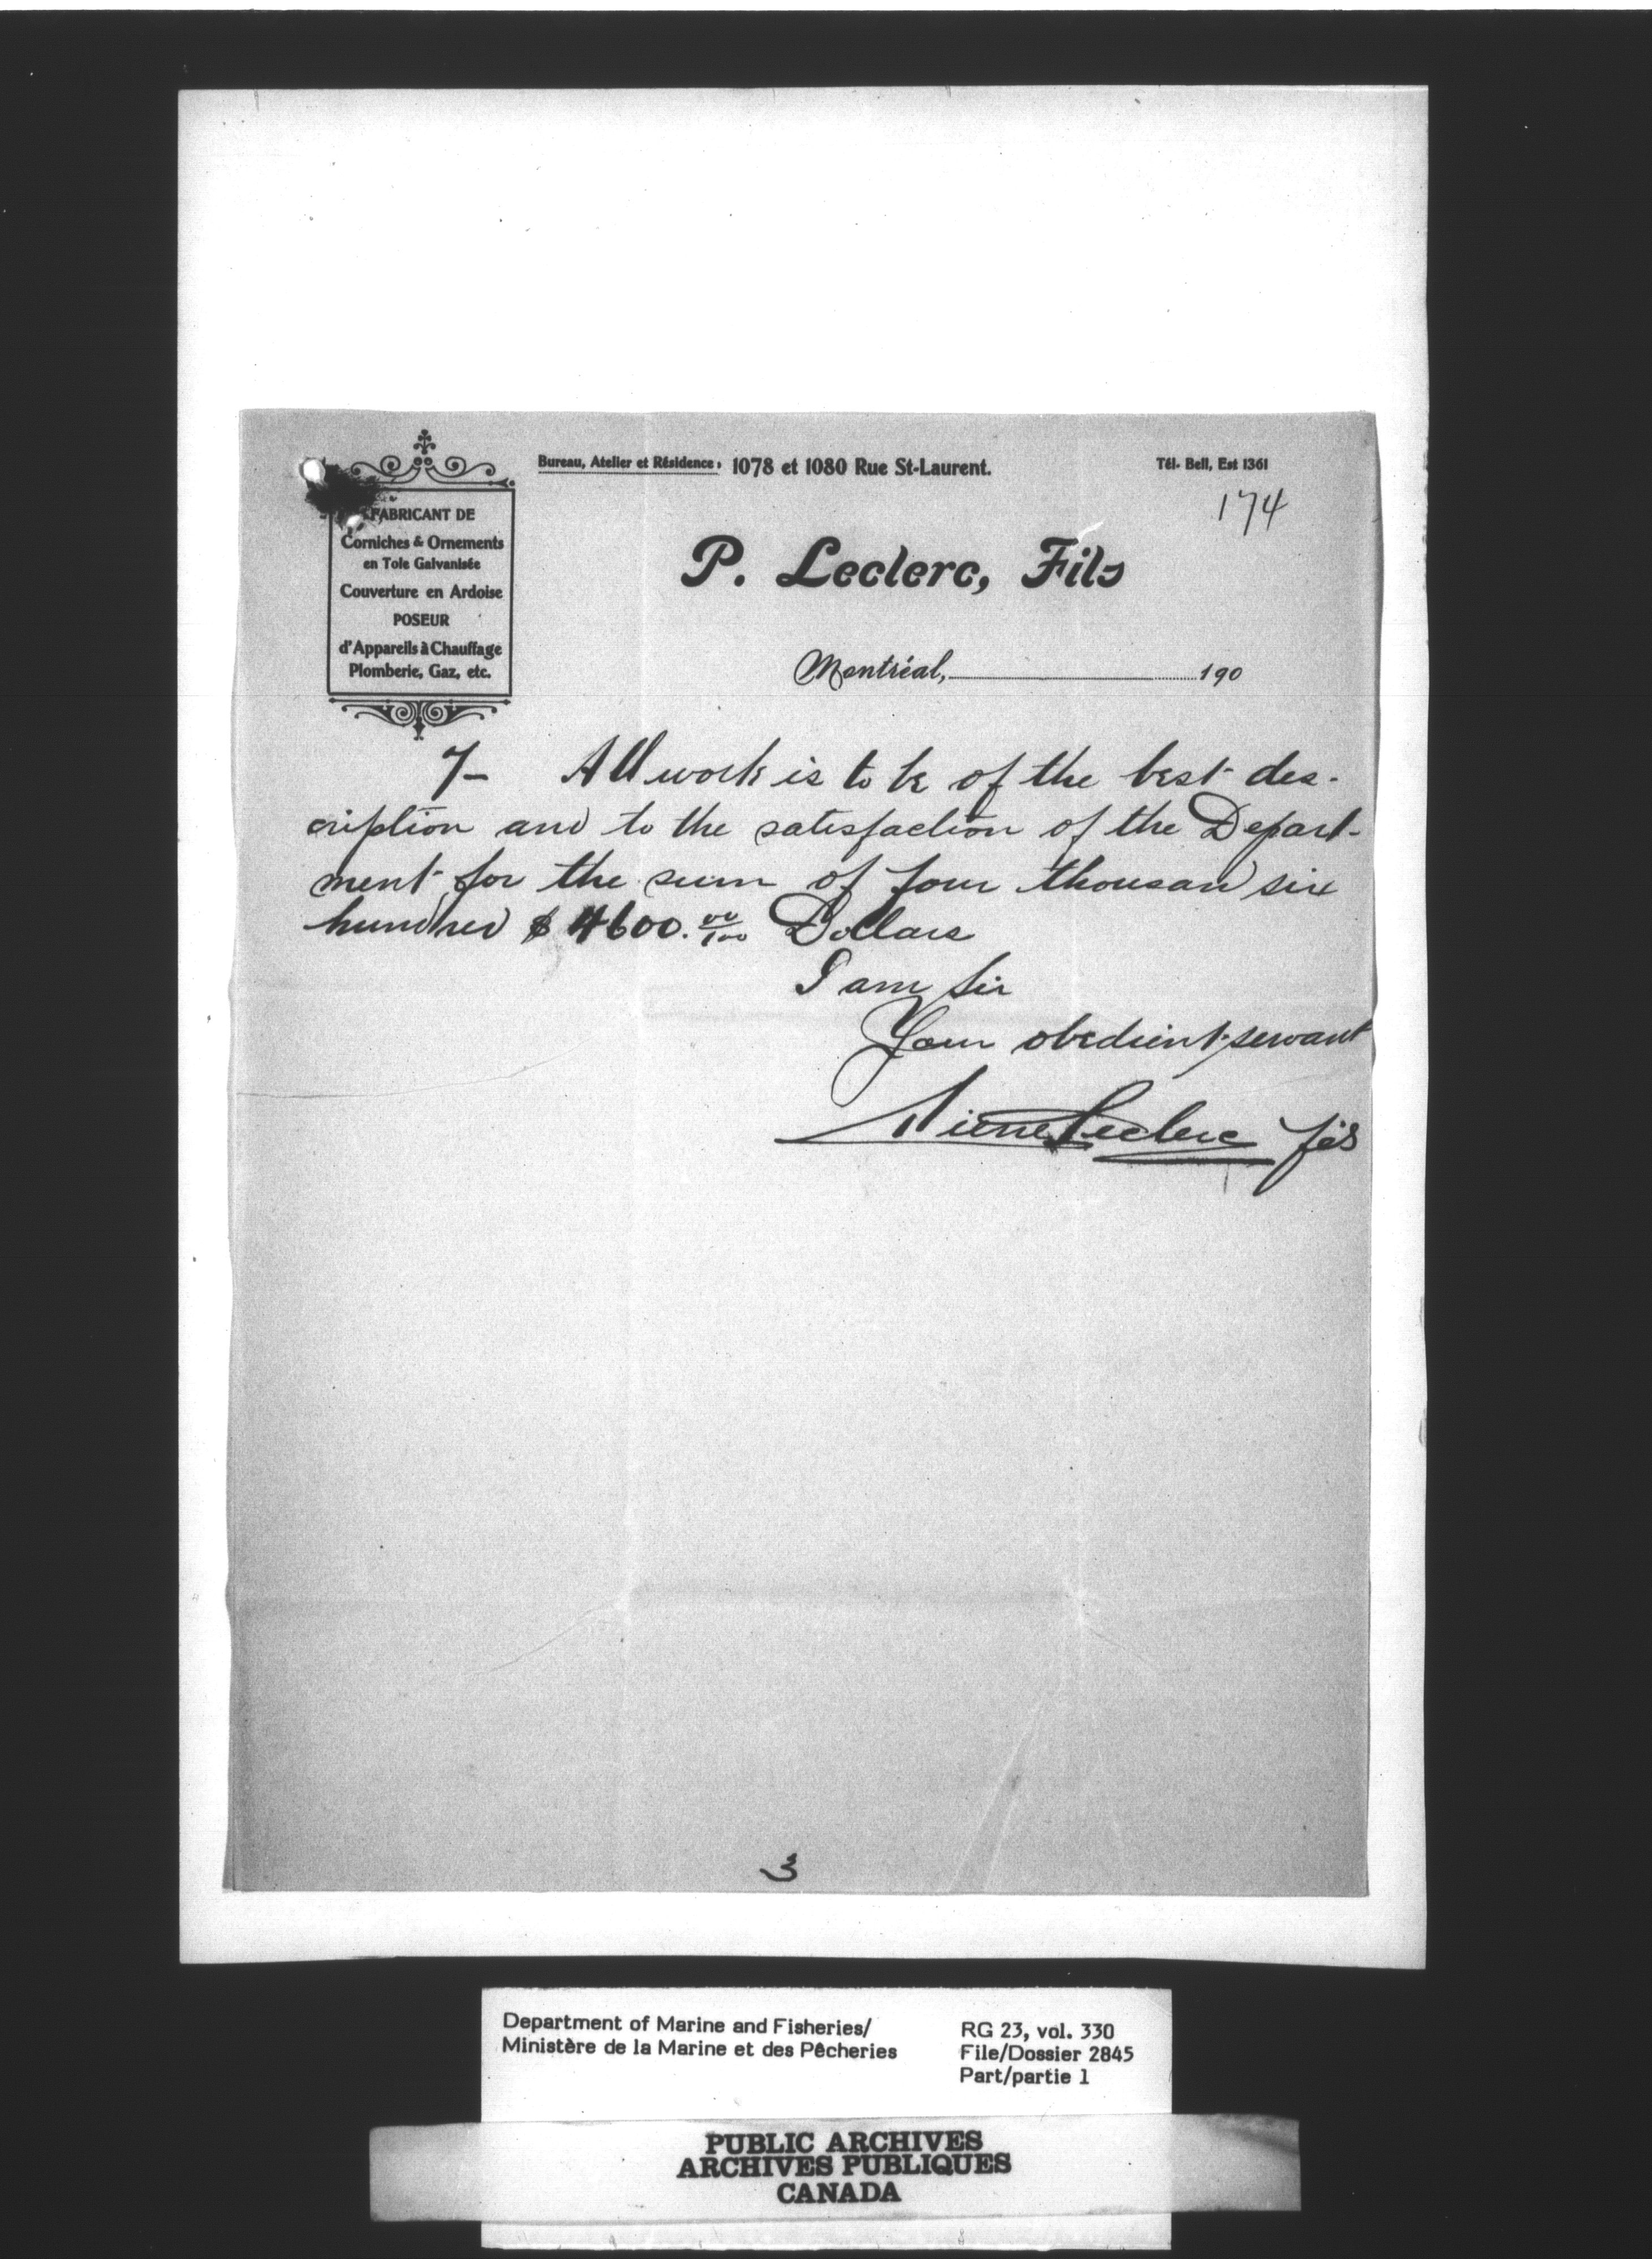 Bureau, Atelier et Résidence, 1078 et 1080 Rue St-Laurent.
Tél. Bell, Est 1361
174
FABRICANT DE
Corniches & Ornements
en Tole Galvanisée
Couverture en Ardoise
POSEUR
d'Appareils à Chauffage
Plomberie, Gaz, etc.
P. Leclerc, Fils
Montréal, 190
7- All work is to be of the best des-
cription and to the satisfaction of the Depart-
ment for the sum of four thousand six
hundred $ 4600. 00/100 Dollars
I am Sir
Your obedient servant
Pierre Leclerc fils
3
Department of Marine and Fisheries/
Ministère de la Marine et des Pêcheries
RG 23, vol. 330
File/Dossier 2845
Part/partie 1
PUBLIC ARCHIVES
ARCHIVES PUBLIQUES
CANADA